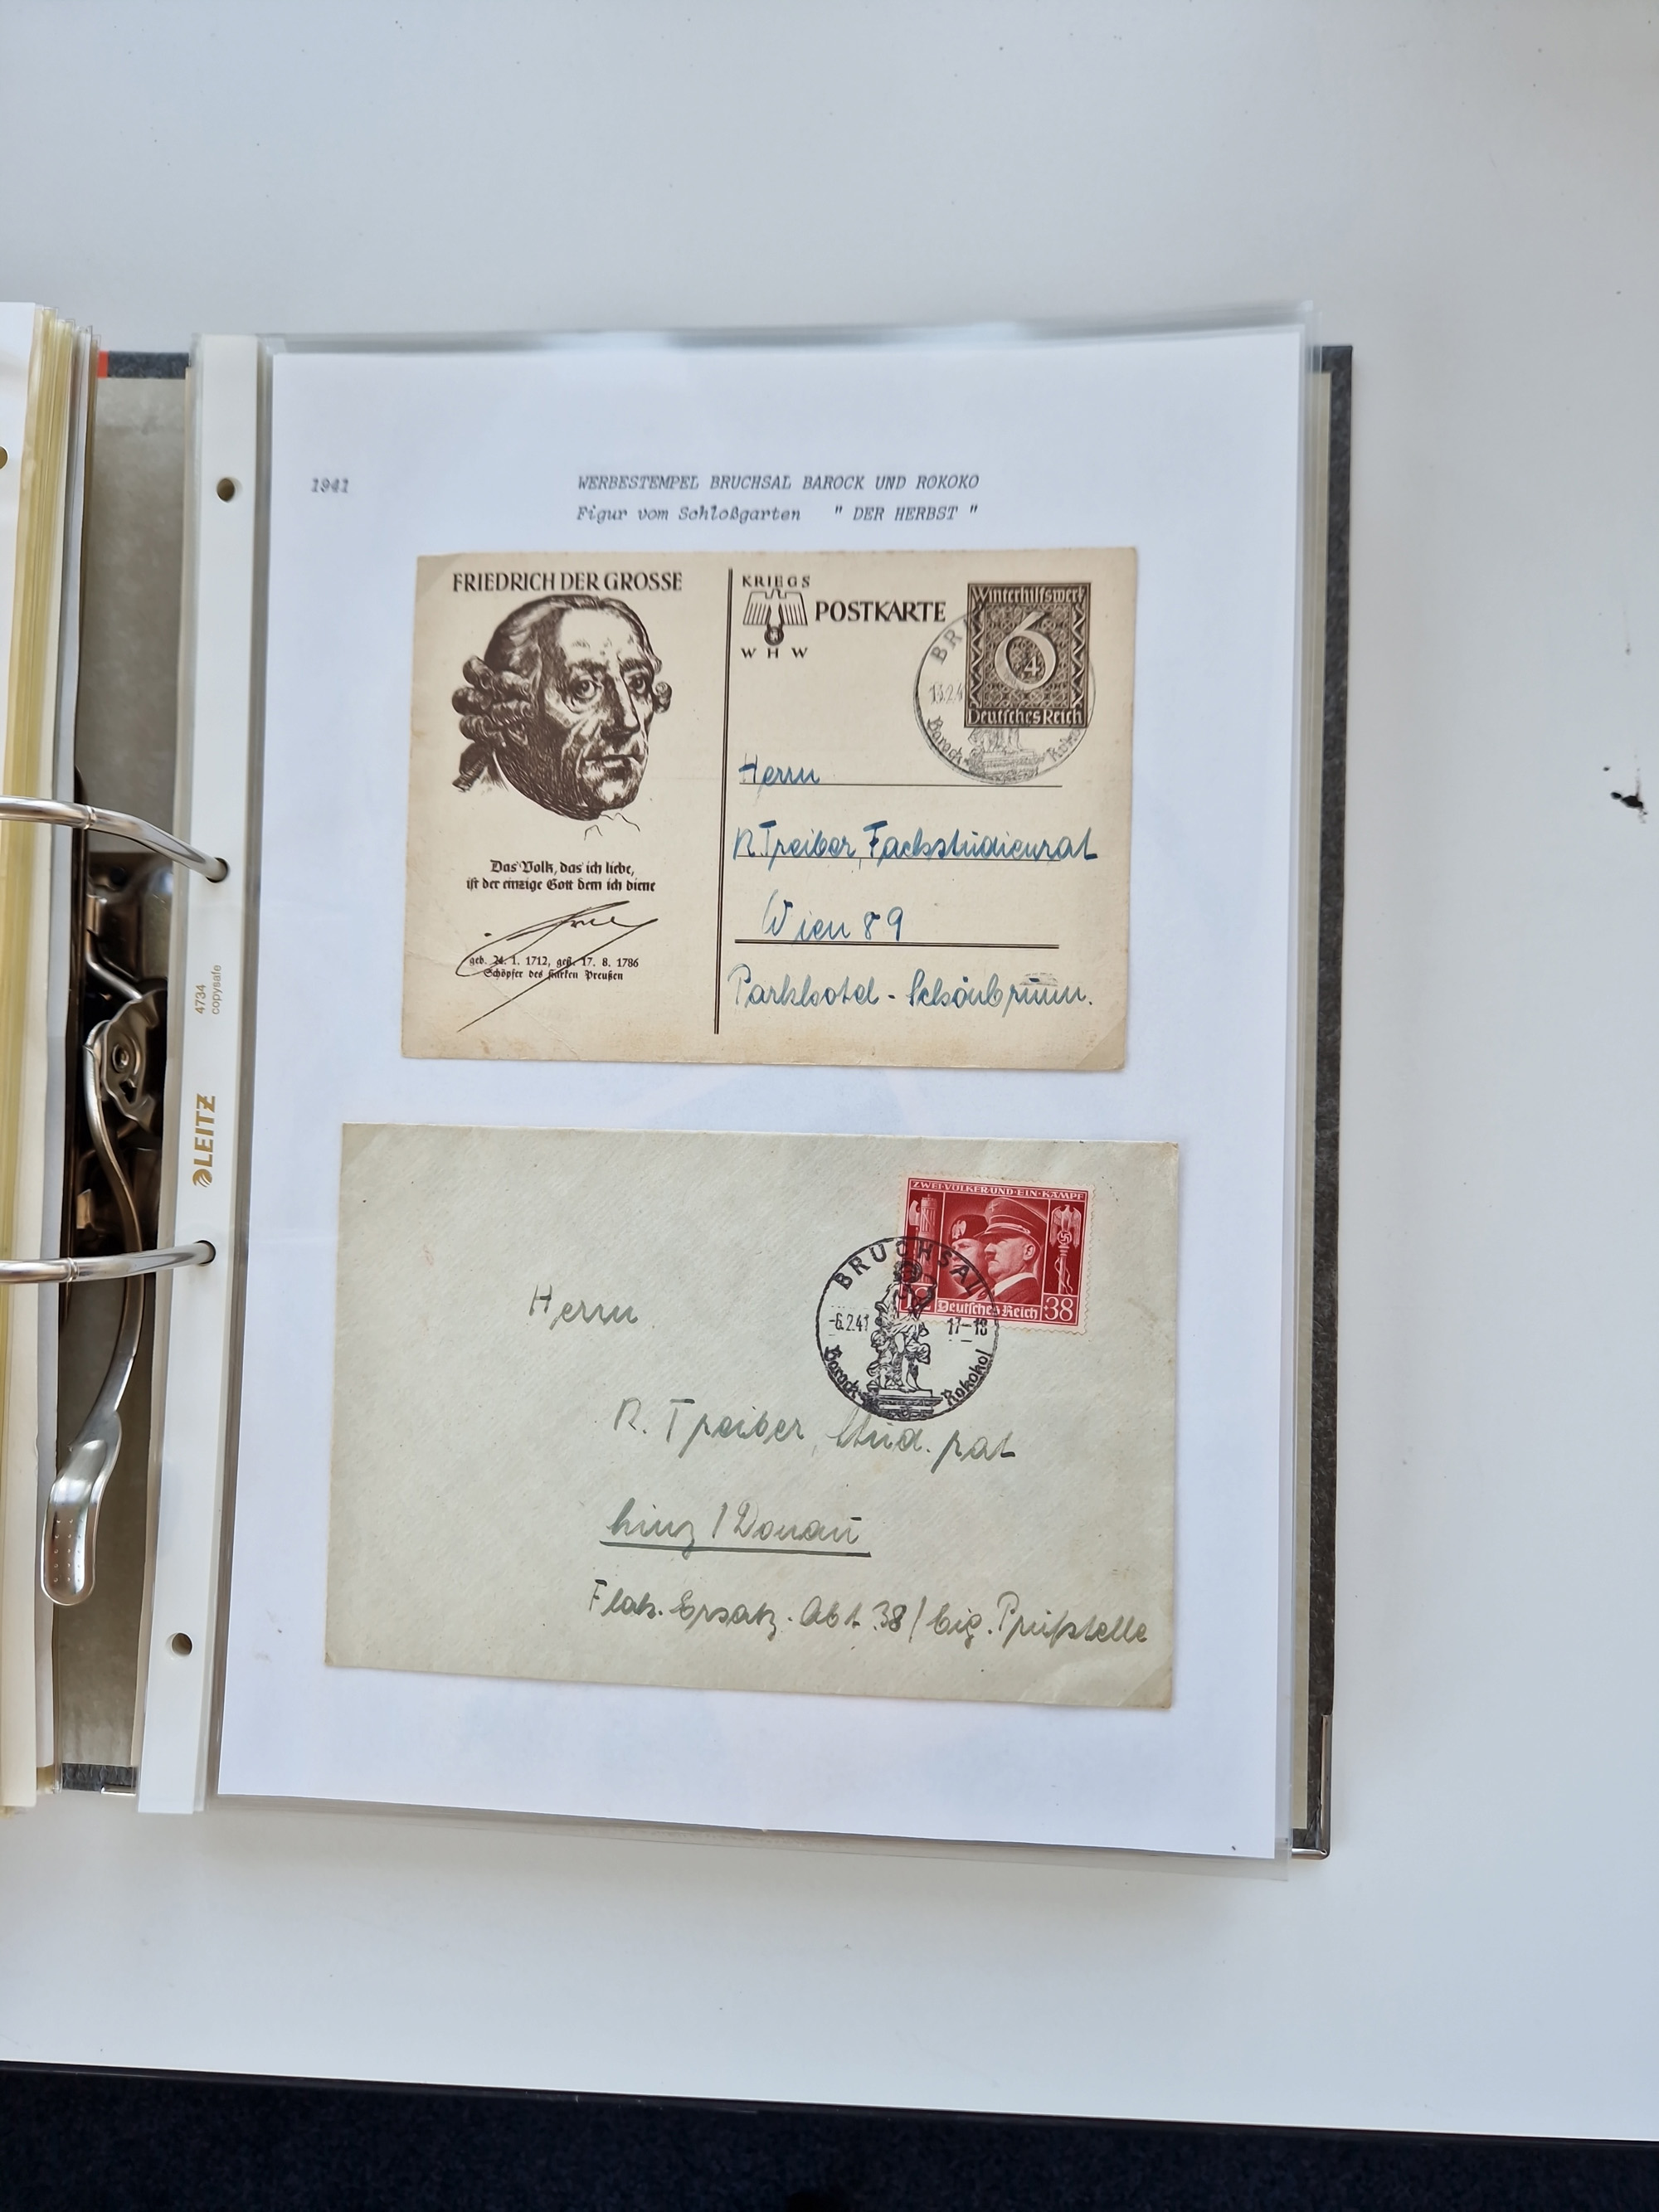 1941
WERBESTEMPEL BRUCHSAL BAROCK UND ROKOKO
Figur vom Schloßgarten " DER HERBST "
FRIEDRICH DER GROSSE
Das Volk, das ich liebe,
ist der einzige Gott dem ich diene
geb. 24. 1. 1712, gest. 17. 8. 1786
Schöpfer des starken Preußen
KRIEGS
POSTKARTE
W H W
Winterhilfswerk
6
4
Deutsches Reich
BR
13.2.4
Barock
Roko
Herrn
R. Treiber, Fachstudienrat
Wien 89
Parkhotel - Schönbrunn.
ZWEI·VÖLKER·UND·EIN·KAMPF
12 Deutsches Reich 38
BRUCHSAL
-6.2.41 17-18
Barock Rokoko!
Herrn
R. Treiber, Stud. rat
Linz / Donau
Flak. Ersatz. Abt. 38 / Eig. Prüfstelle
4734
copysafe
LEITZ